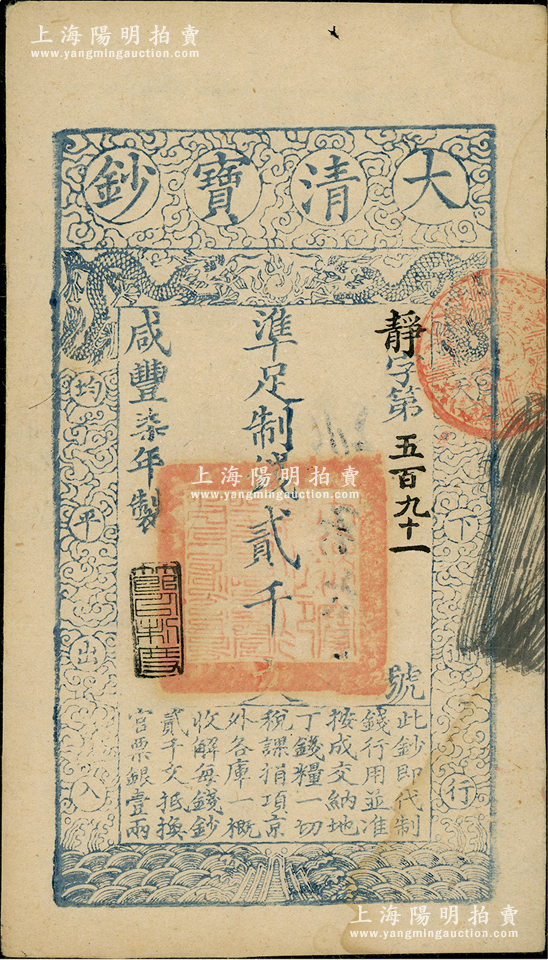 上海陽明拍賣
www.yangmingauction.com
大清寶鈔
天下通行
均平出入
靜字第五百九十一號
準足制錢貳千文
咸豐柒年製
此鈔即代制
錢行用並准
按成交納地
丁錢糧一切
稅課捐項京
外各庫一概
收解每錢鈔
貳千文抵換
官票銀壹兩
上海陽明拍賣
www.yangmingauction.com
上海陽明拍賣
www.yangmingauction.com